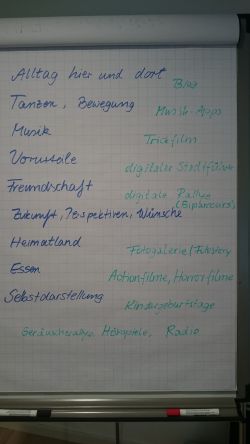 Alltag hier und dort
Blog
Tanzen, Bewegung
Musik-Apps
Musik
Trickfilm
Vorurteile
digitaler Stadtführer
Freundschaft
digitale Rallye
(Biparcours)
Zukunft, Perspektiven, Wünsche
Heimatland
Fotogalerie / Fotostory
Essen
Actionfilme, Horrorfilme
Selbstdarstellung
Kindergeburtstage
Hörspiele, Radio